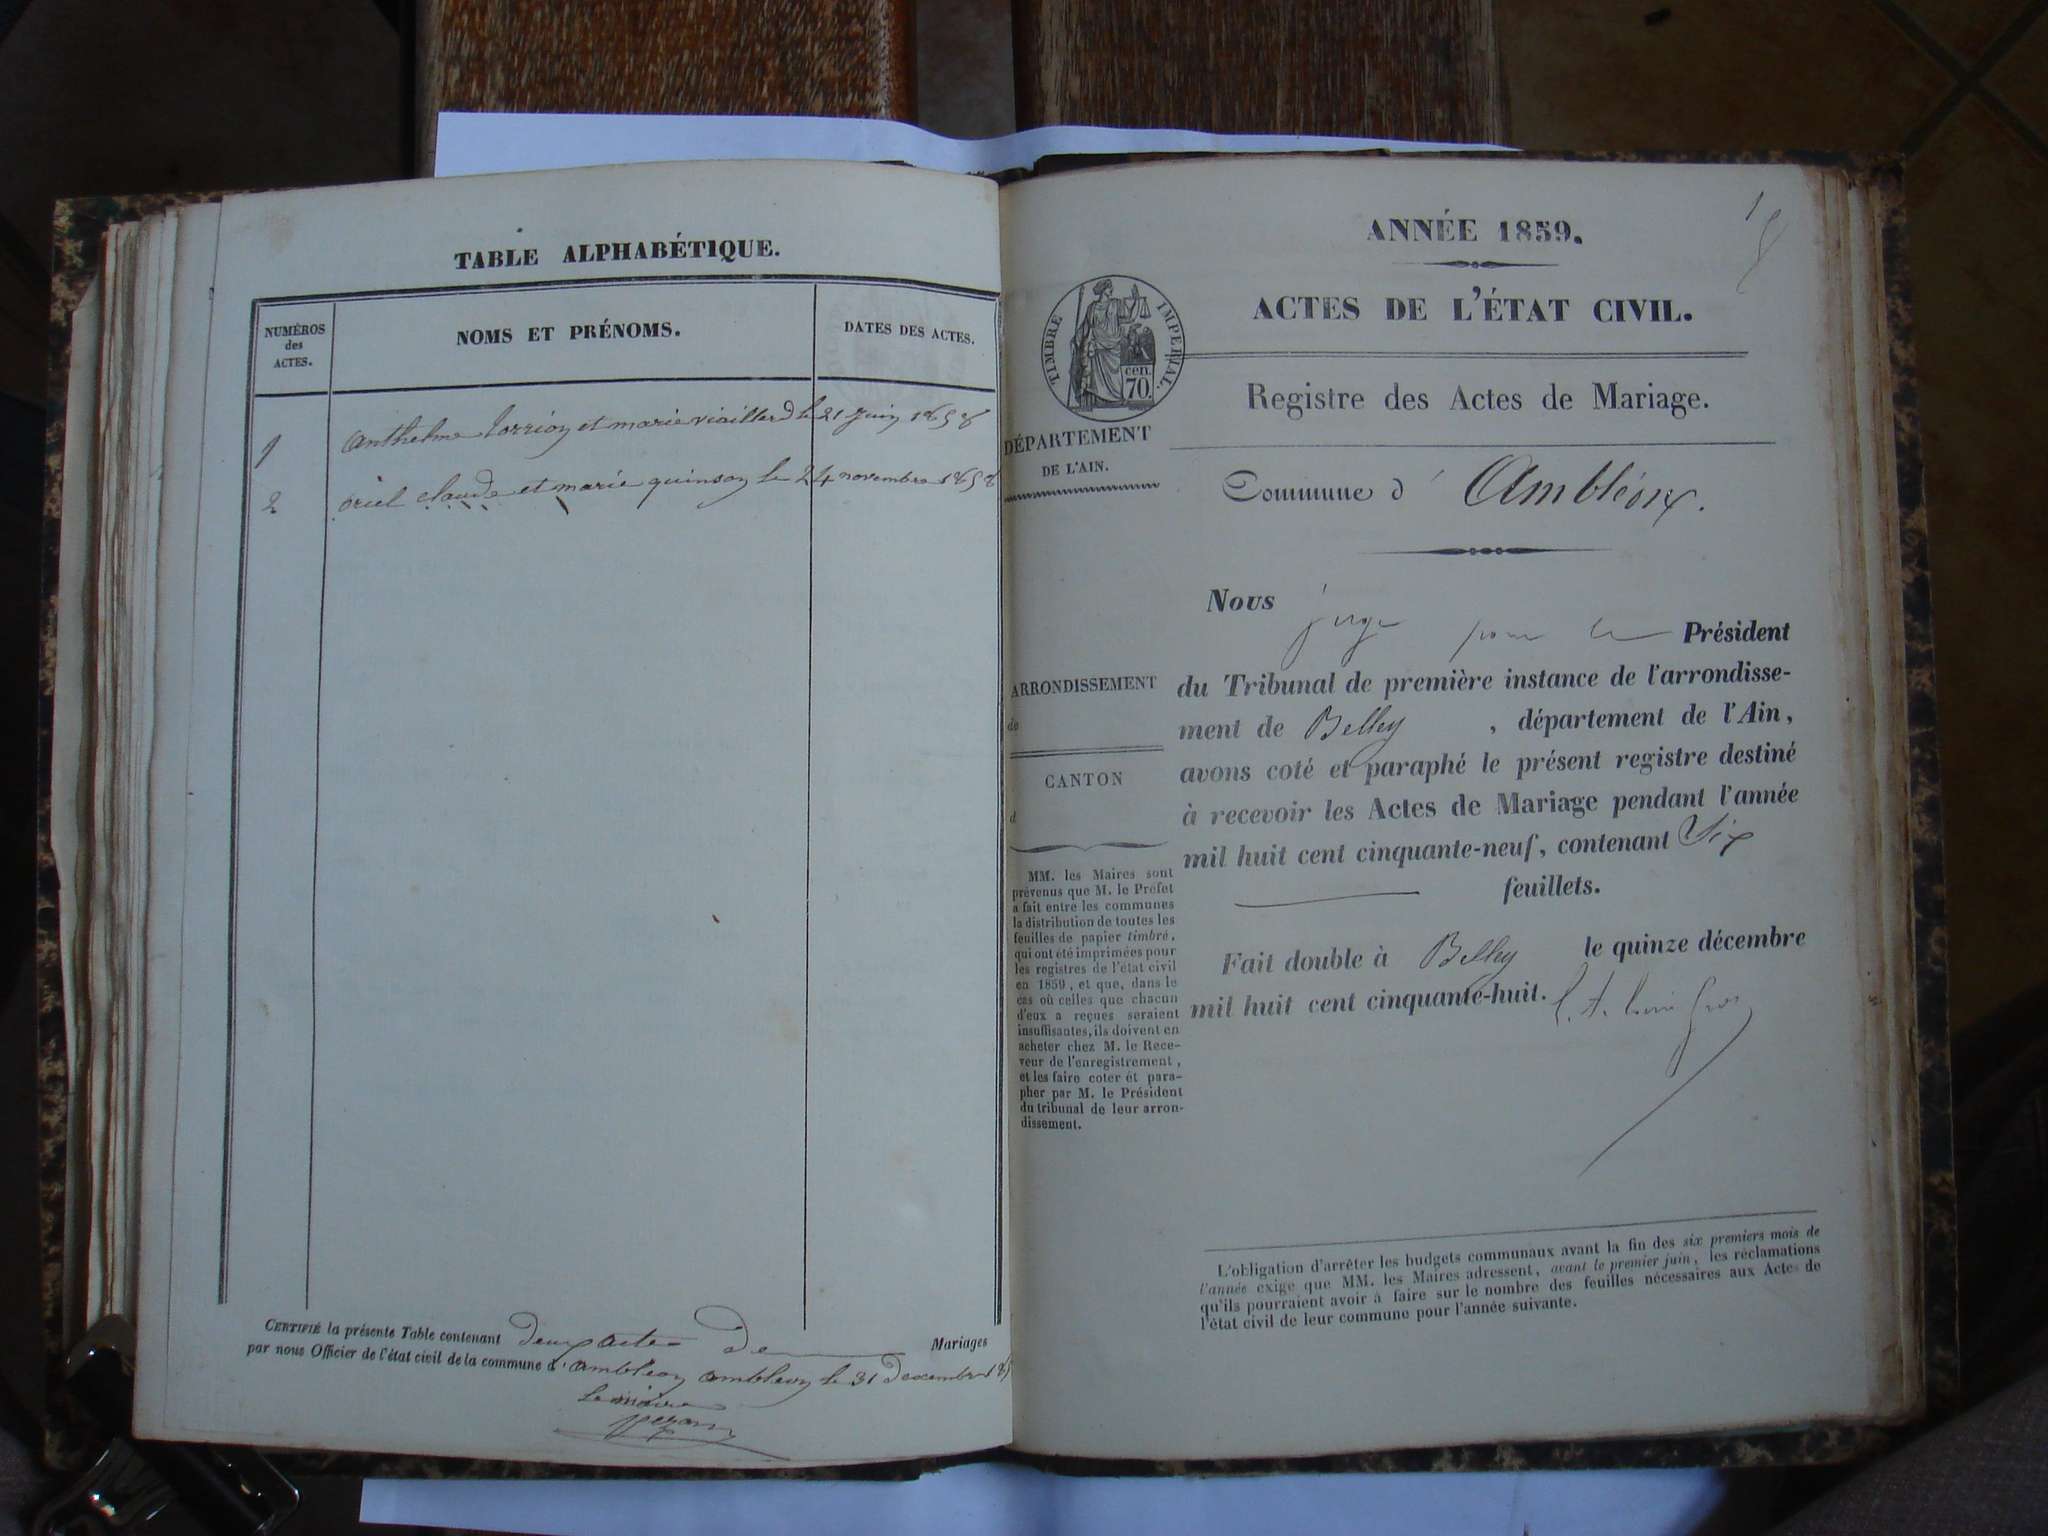 TABLE ALPHABÉTIQUE.
NUMÉROS
des
ACTES.
NOMS ET PRÉNOMS.
DATES DES ACTES.
1 anthelme torrion et marie viaillard le 21 juin 1858
2 oriel claude et marie quinson le 24 novembre 1858
CERTIFIÉ la présente Table contenant deux actes De Mariages
par nous Officier de l'état civil de la commune d'ambléon ambleon le 31 Decembre 185
Le maire
ANNÉE 1859.
1
ACTES DE L'ÉTAT CIVIL.
TIMBRE IMPERIAL.
cen.
70.
Registre des Actes de Mariage.
DÉPARTEMENT
DE L'AIN.
Commune d' Ambléon.
Nous
juge pour le Président
du Tribunal de première instance de l'arrondisse-
ment de Belley, département de l'Ain,
avons coté et paraphé le présent registre destiné
à recevoir les Actes de Mariage pendant l'année
mil huit cent cinquante-neuf, contenant Six
feuillets.
Fait double à Belley le quinze décembre
mil huit cent cinquante-huit.
ARRONDISSEMENT
de
CANTON
d
MM. les Maires sont
prévenus que M. le Préfet
a fait entre les communes
la distribution de toutes les
feuilles de papier timbré,
qui ont été imprimées pour
les registres de l'état civil
en 1859, et que, dans le
cas où celles que chacun
d'eux a reçues seraient
insuffisantes, ils doivent en
acheter chez M. le Rece-
veur de l'enregistrement,
et les faire coter et para-
pher par M. le Président
du tribunal de leur arron-
dissement.
L'obligation d'arrêter les budgets communaux avant la fin des six premiers mois de
l'année exige que MM. les Maires adressent, avant le premier juin, les réclamations
qu'ils pourraient avoir à faire sur le nombre des feuilles nécessaires aux Actes de
l'état civil de leur commune pour l'année suivante.